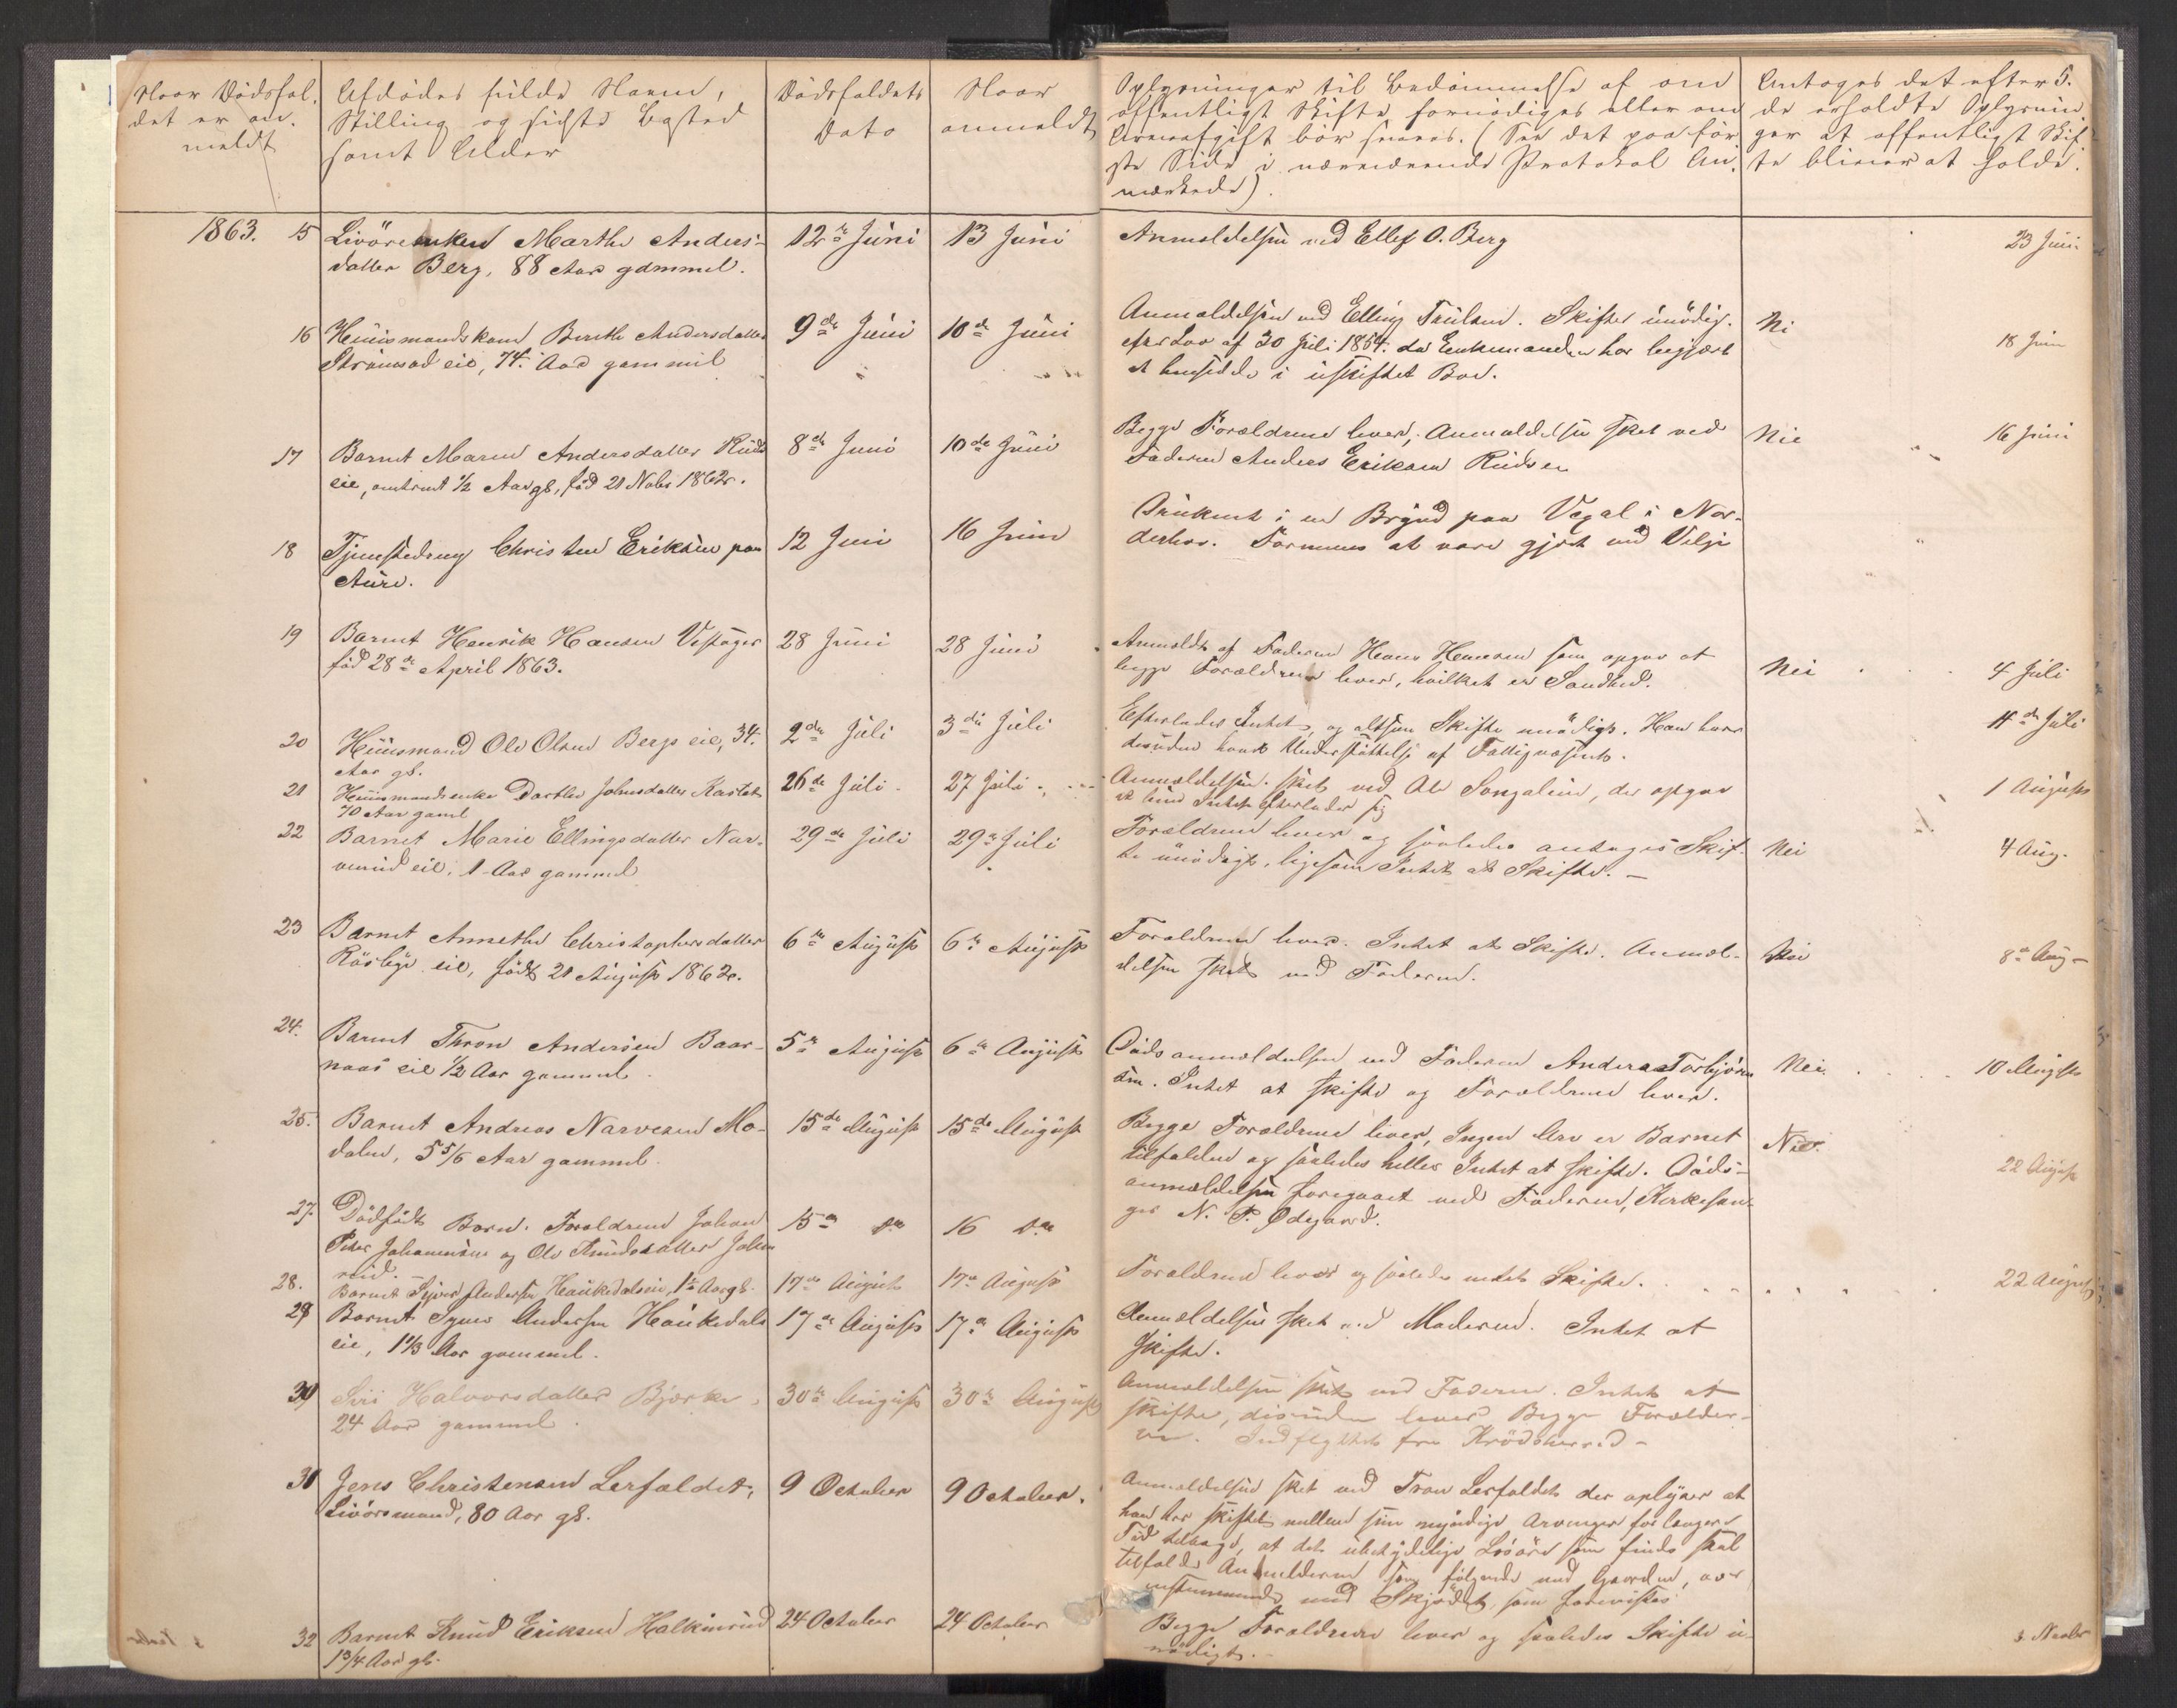 Naar Dödsfal-
det er an-
meldt
Afdödes fulde Navn,
Stilling og sidste Bosted
samt Alder
Dödsfaldets
Dato
Naar
anmeldt
Oplysninger til Bedömmelse af om
offentligt Skifte fornödiges eller om
Arveafgift bör svares. (See det paa för-
ste Side i nærværende Protokol An-
mærkede).
Antages det efter 5.
de erholdte Oplysnin-
ger at offentligt Skif-
te bliver at holde.
1863. 15 Livöreenken Marthe Anders-
datter Berg, 88 Aar gammel.
12te Juni
13 Juni
Anmeldelsen ved Ellef O. Berg
23 Juni
16 Huusmandskone Berthe Andersdatter
eie, 74 Aar gammel
9de Juni
10de Juni
Anmeldelsen ved Elling . Skiftet unödig.
efter Lov af 30 Juli 1854. da Enkemanden har begjært
at hensidde i uskiftet Boe.
Nei
18 Juni
17 Barnet Maren Andersdatter Ruds
eie, omtrent 1/2 Aar gl., föd 21 Novbr 1862.
8de Juni
10de Juni
Begge Forældrene lever, Anmeldelsen sket ved
Faderen Anders Eriksen
Nei
16 Juni
18 Tjenestedreng Christen Eriksen paa
Aure.
12 Juni
16 Juni
Druknet i en Brönd paa Vegal i Nor-
derhov. Formenes at være gjort med Vilje
19 Barnet Henrik Hansen Vestager
föd 28de April 1863.
28 Juni
28 Juni
Anmeldt af Faderen Hans Hansen som opgav at
begge Forældrene lever, hvilket er Sandhed.
Nei
4 Juli
20 Huusmand Ole Olsen Bergs eie, 34.
Aar gl.
2den Juli
3die Juli
Efterlader Intet, og altsaa Skifte unödigt. Han haver
desuden havt Understöttelse af Fattigvæsenet.
11de Juli
21 Huusmandsenke Dorthe Johnsdatter
70 Aar gaml
26de Juli
27 Juli
Anmeldelsen sket ved Ale , der opgav
at hun Intet efterlader sig
1 August
22 Barnet Marie Ellingsdatter Nar-
verud eie, 1 Aar gammel
29de Juli
29de Juli
Forældrene lever og saaledes antages Skif-
te unödigt, ligesom Intet at Skifte. -
Nei
4 Aug.
23 Barnet Annethe Christophersdatter
eie, födt 21 August 1862.
6te August
6te August
Forældrene lever. Intet at Skifte. Anmel-
delsen sket ved Faderen.
Nei
8de Aug -
24. Barnet Thron Andersen Baar-
naas eie 1/2 Aar gammel.
5te August
6te August
Döds anmeldelsen ved Faderen Anders Torbjörn-
sen. Intet at skifte og Forældrene lever.
Nei.
10 August
25. Barnet Andreas Narvesen Mo-
dalen, 5 5/6 Aar gammel.
15de August
15de August
Begge Forældrene lever, Ingen Arv er Barnet
tilfalden og saaledes heller Intet at skifte. Döds-
anmeldelsen foregaaet ved Faderen, Kirkesan-
ger N. P. Ödegaard.
Nei.
22 August
27. Dödfödt Barn. Forældrene Johan
Peter Johannesen og Ole Knudsdatter
15de do
16 do
28. Barnet Andersen Haukedalseie, Aar gl.
17de August
17de August
Forældrene lever og saaledes intet Skifte.
22 August
29 Barnet Andersen Haukedals
eie, 1 1/3 Aar gammel.
17de August
17de August
Anmeldelsen sket ved Moderen. Intet at
Skifte.
30 Siri Halvorsdatter Bjerke,
24 Aar gammel.
30te August
30te August
Anmeldelsen sket ved Faderen. Intet at
skifte, desuden lever Begge Forælder-
ne. Indflyttet fra Krödsherred -
31 Jens Christensen Lerfaldet,
Livöresmand, 80 Aar gl.
9 October
9 October.
Anmeldelsen sket ved Tron Lerfaldet der oplyser at
han har skiftet mellem sine myndige Arvinger for længere
Tid tilbage, at det ubetydelige Lösöre som findes skal
tilfalde Anmelderen som fölgende med Gaarden, over-
ensstemmende med Skjödet, som forevistes
32 Barnet Knud Eriksen Halkinrud
1 3/4 Aar gl.
24 October
24 October
Begge Forældrene lever og saaledes Skifte u-
nödigt.
3 Novbr